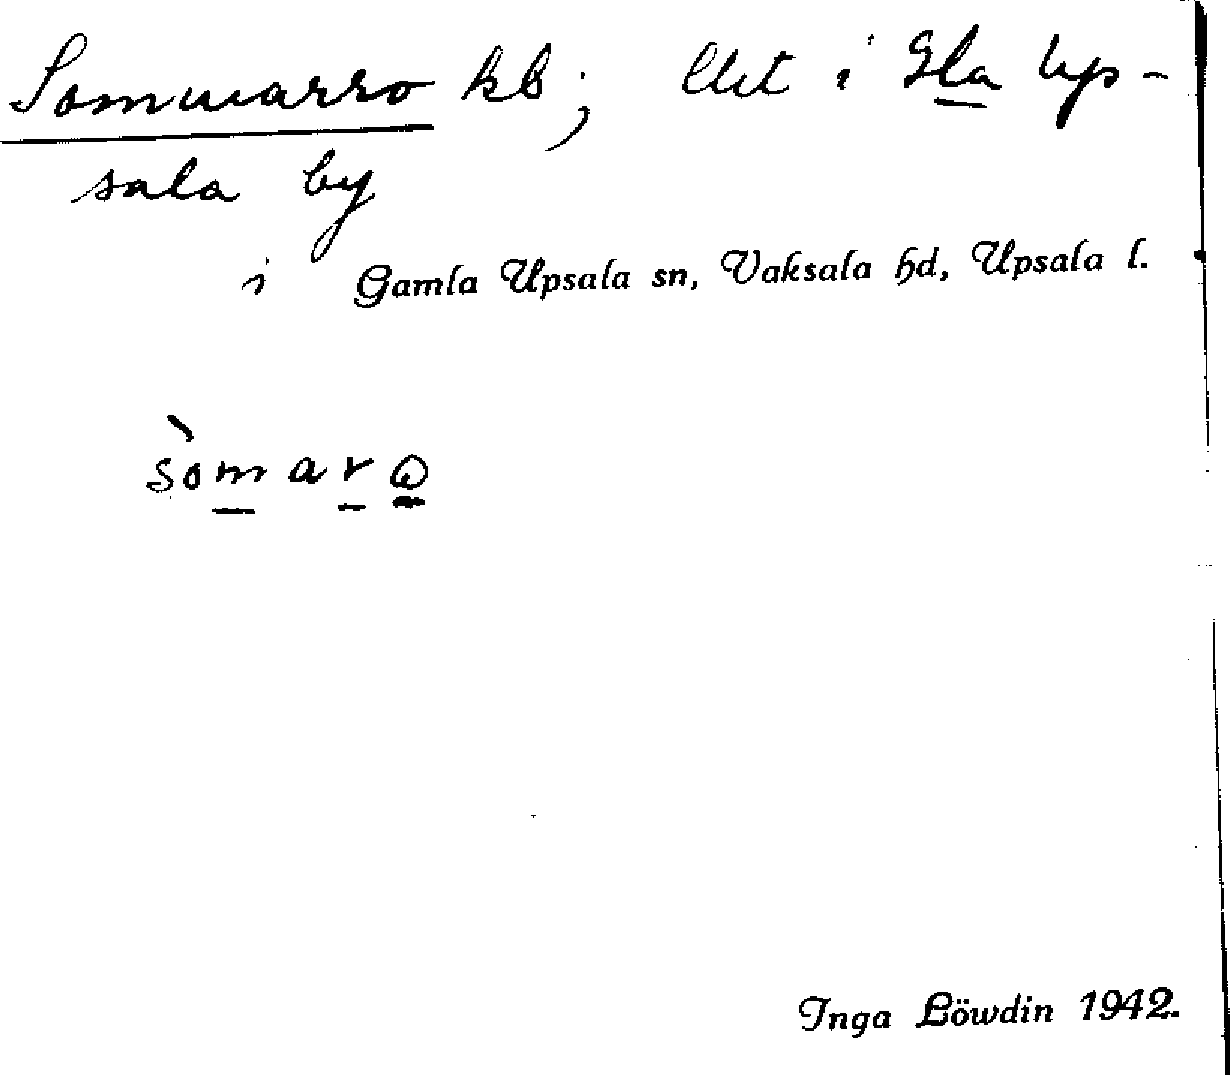 Sommarro kb; litet i Gla Up-
sala by
i Gamla Upsala sn, Vaksala hd, Upsala l.
sòmaro
Inga Löwdin 1942.